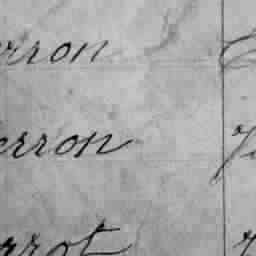 rron
erron
rrot